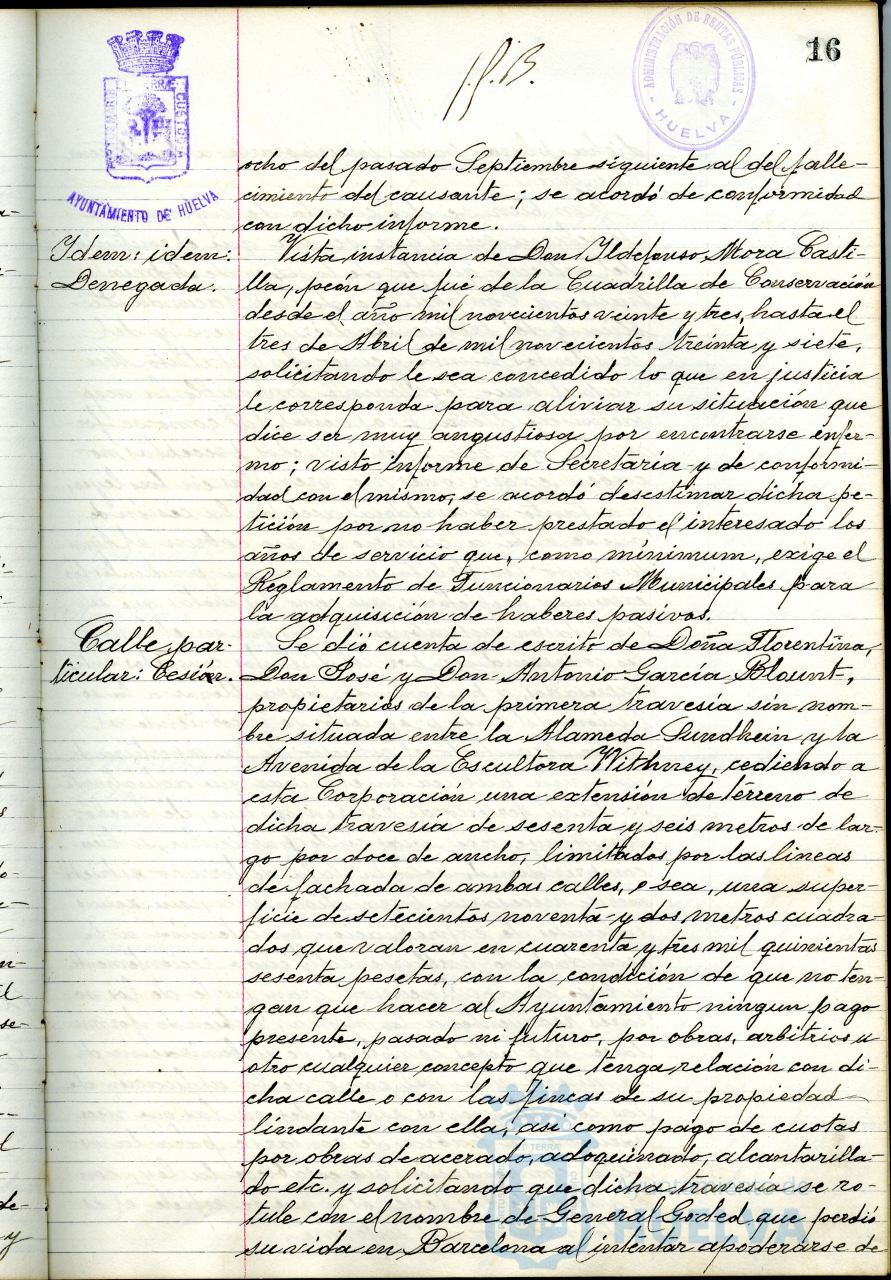 16
AYUNTAMIENTO DE HUELVA
ADMINISTRACIÓN DE RENTAS PÚBLICAS
HUELVA
ocho del pasado Septiembre siguiente al del falle-
cimiento del causante; se acordó de conformidad
con dicho informe.
Idem: idem:
Denegada.
Vista instancia de Don Ildefonso Mora Casti-
lla, peón que fué de la Cuadrilla de Conservación
desde el año mil novecientos veinte y tres, hasta el
tres de Abril de mil novecientos treinta y siete,
solicitando le sea concedido lo que en justicia
le corresponda para aliviar su situación que
dice ser muy angustiosa por encontrarse enfer-
mo; visto informe de Secretaría y de conformi-
dad con el mismo, se acordó desestimar dicha pe-
tición por no haber prestado el interesado los
años de servicio que, como mínimum, exige el
Reglamento de Funcionarios Municipales para
la adquisición de haberes pasivos.
Calle par-
ticular: Cesión.
Se dió cuenta de escrito de Doña Florentina,
Don José y Don Antonio García Blount,
propietarios de la primera travesía sin nom-
bre situada entre la Alameda Sundhein y la
Avenida de la Escultora Withney, cediendo a
esta Corporación una extensión de terreno de
dicha travesía de sesenta y seis metros de lar-
go por doce de ancho, limitados por las lineas
de fachada de ambas calles, o sea, una super-
ficie de setecientos noventa y dos metros cuadra-
dos que valoran en cuarenta y tres mil quinientas
sesenta pesetas, con la condición de que no ten-
gan que hacer al Ayuntamiento ningun pago
presente, pasado ni futuro, por obras, arbitrios u
otro cualquier concepto que tenga relación con di-
cha calle o con las fincas de su propiedad
lindante con ella, asi como pago de cuotas
por obras de acerado, adoquinado, alcantarilla-
do etc. y solicitando que dicha travesía se ro-
tule con el nombre de General Goded que perdió
su vida en Barcelona al intentar apoderarse de
HUELVA